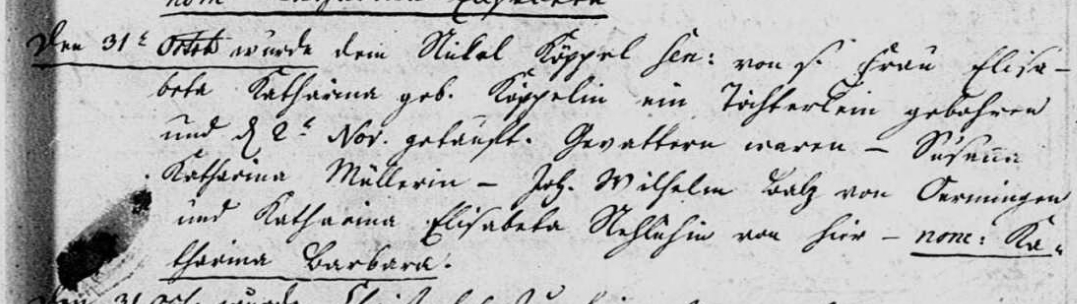 Den 31t Octob wurde dem Nikel Köppel sen: von s. Frau Elisa-
beta Katharina geb. Köppelin ein Töchterlein gebohren
und d 2t Nov. getauft. Gevattern waren – Susanna
Katharina Müllerin – Joh. Wilhelm Balz von Oermingen
und Katharina Elisabeta von hier – nom: Ka-
tharina Barbara.